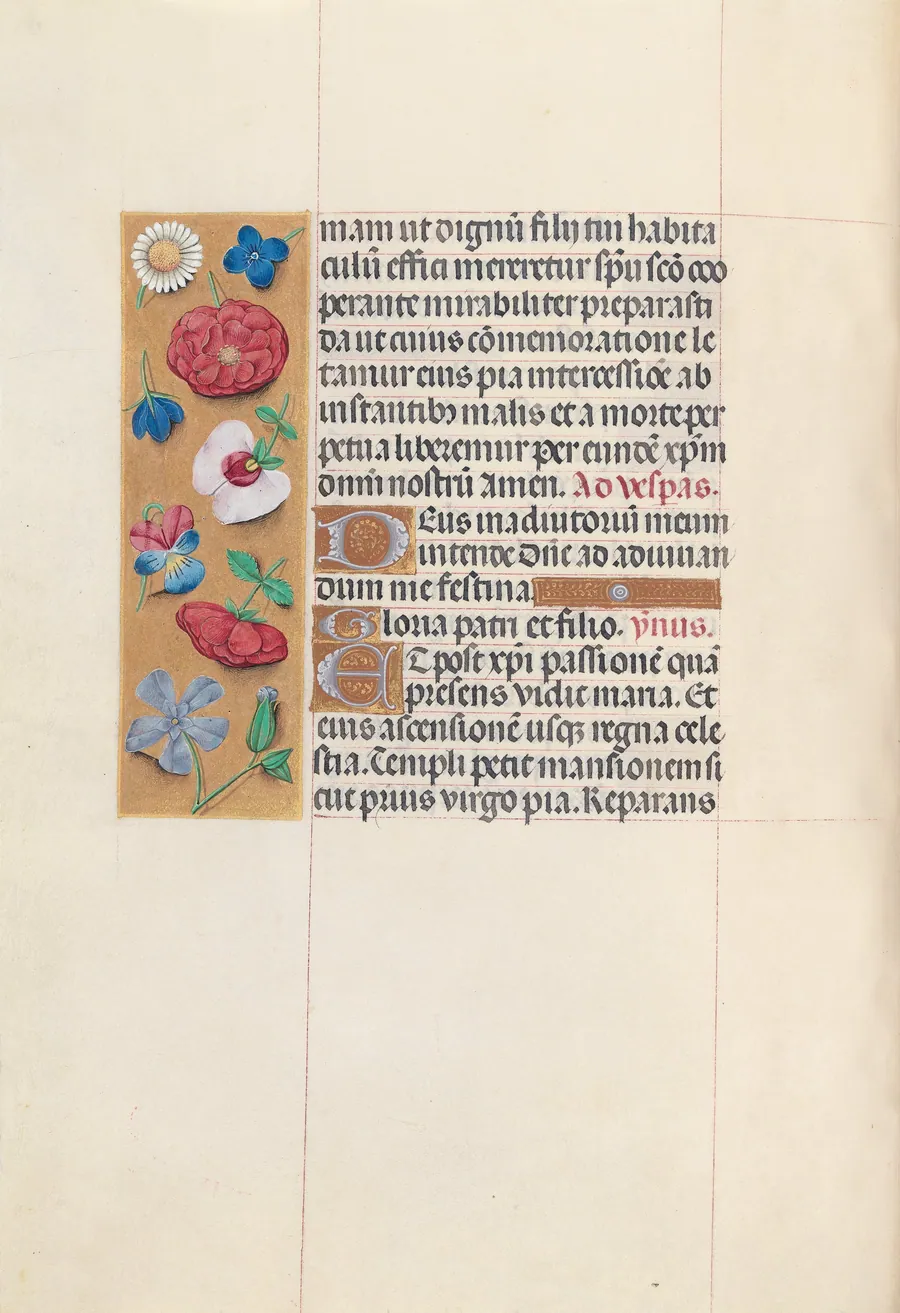 mam ut dignū filij tui habita
culū effici mereretur sp̄u scō coo
perante mirabiliter preparasti
da ut cuius cōmemoratione le
tamur eius pia intercessiōe ab
instantibꝫ malis et a morte per
petua liberemur per eundē xp̄m
dnm̄ nostrū Amen. Ad vespas.
Deus in adiutoriū meum
intende Dn̄e ad adiuuan
dum me festina
Gloria patri et filio. ẏmus.
Et post xp̄i passionē quā
presens vidit maria. Et
eius ascensionē usqꝫ regna cele
stia. Templi petit mansionem si
cut prius virgo pia. Reparans